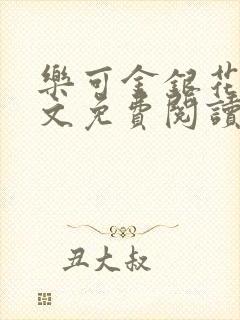 樂可金銀花
文免費閱讀
丑大叔